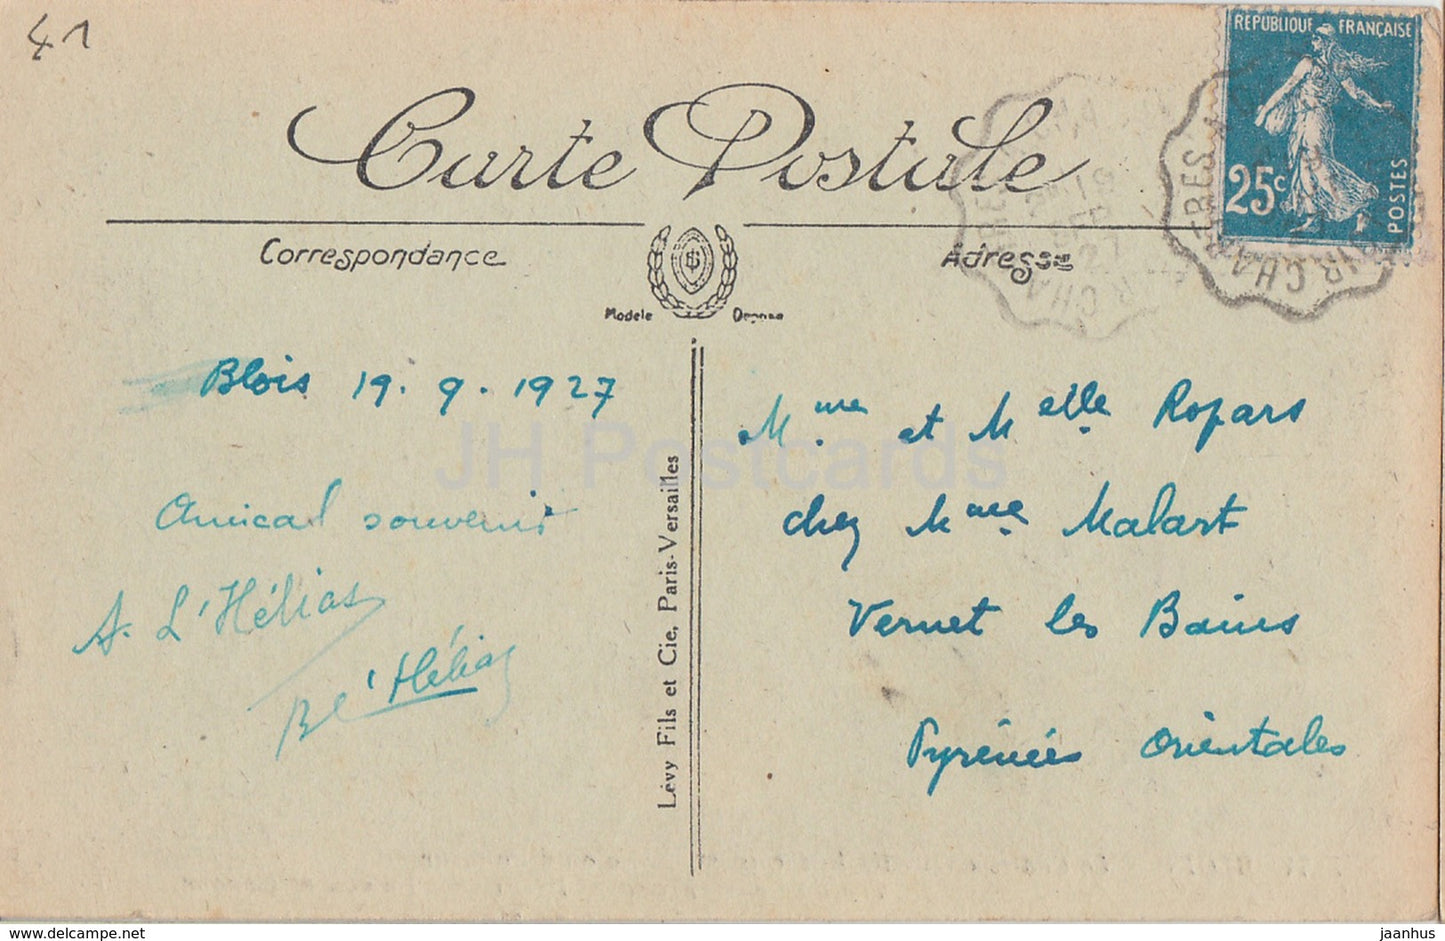 41
RÉPUBLIQUE FRANÇAISE
25c
POSTES
Carte Postale
Correspondance
Adresse
Modèle Déposé
Blois 19.9.1927
Amical souvenir
A. L'Hélias
B L'Hélias
Lévy Fils et Cie, Paris-Versailles
Mme et Melle Ropars
chez Mme Malart
Vernet les Bains
Pyrénées Orientales
JH Postcards
www.delcampe.net
jaanhus